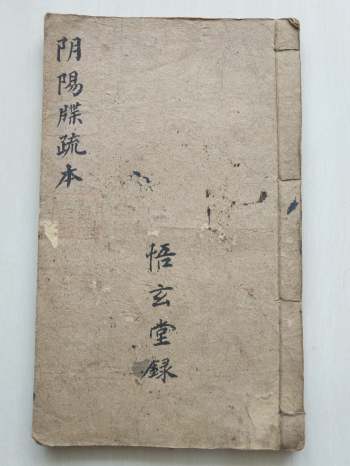 阴陽牒疏本
悟玄堂録